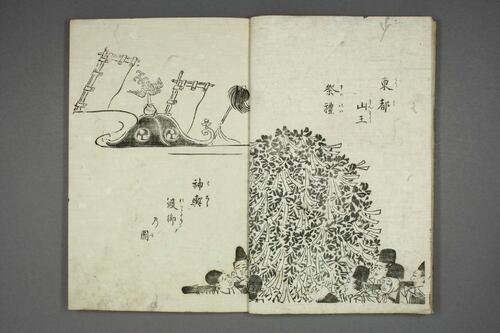 東都
山王
祭禮
神輿
渡御
乃圖